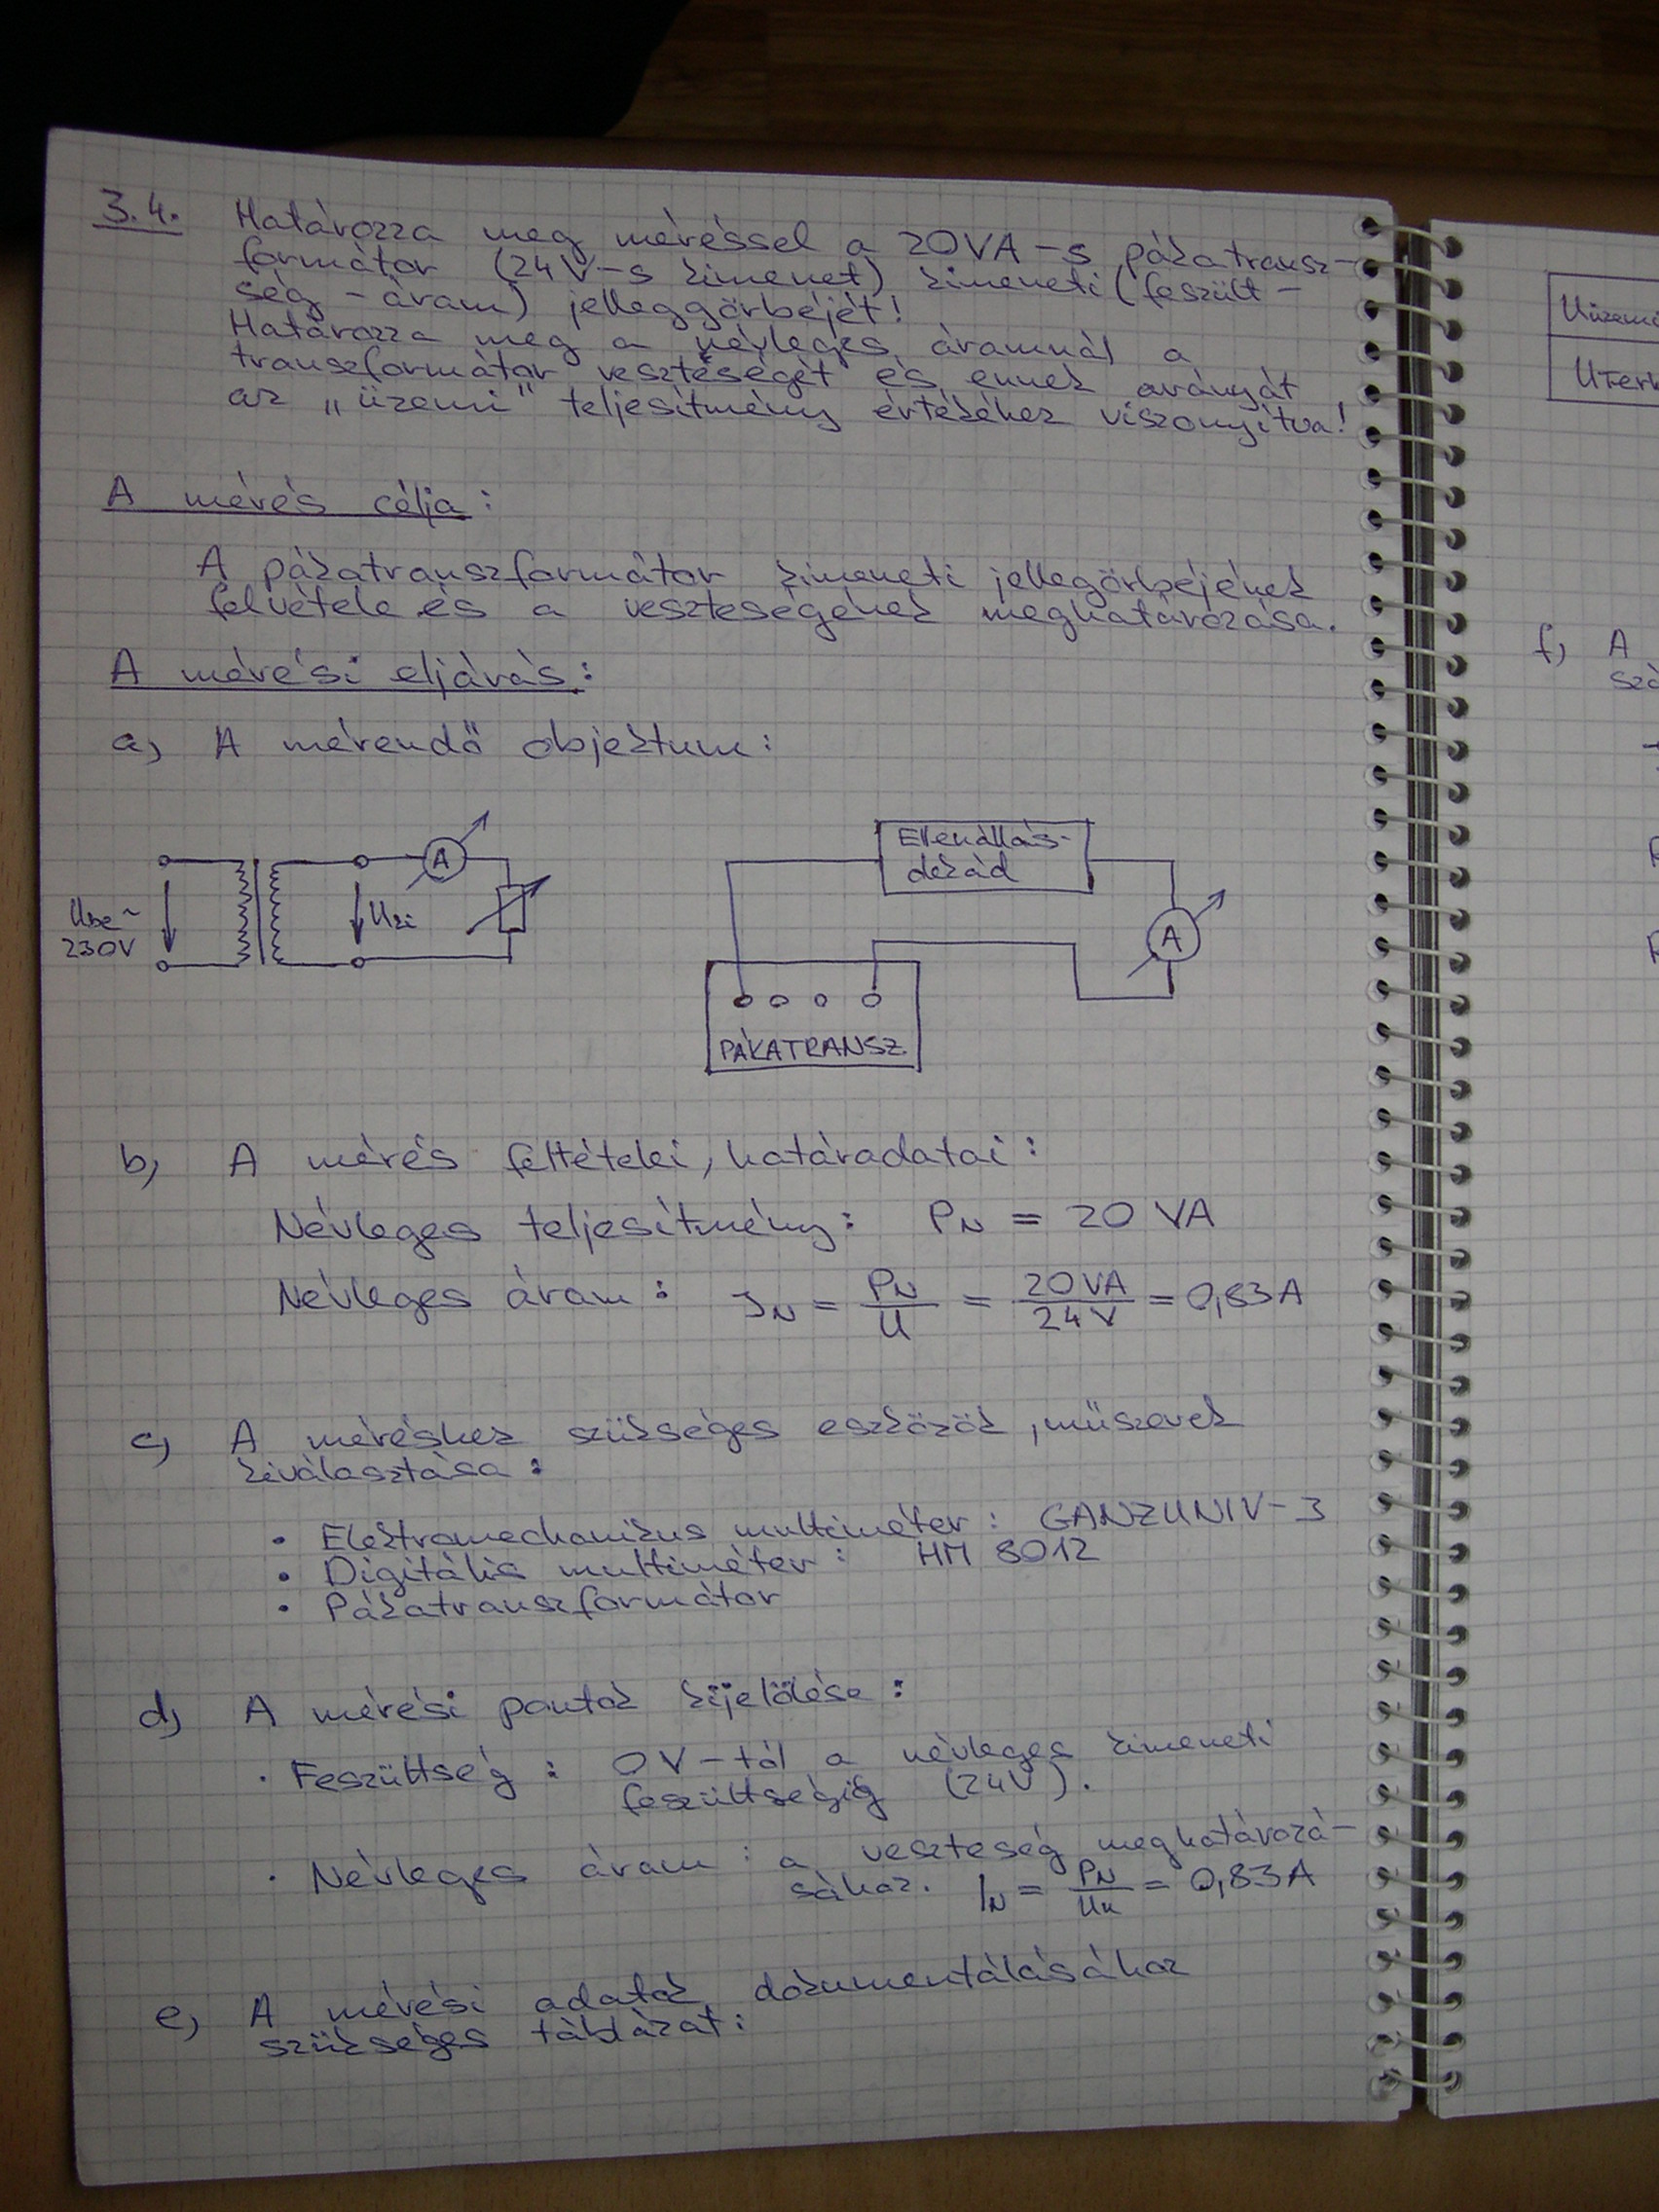 3.4. Határozza meg méréssel a 20VA-s pákatransz-
formátor (24V-s kimenet) kimeneti (feszült-
ség - áram) jelleggörbéjét!
Határozza meg a névleges áramnál a
transzformátor veszteségét és ennek arányát
az „üzemi" teljesítmény értékéhez viszonyítva!
A mérés célja:
A pákatranszformátor kimeneti jellegörbéjének
felvétele és a veszteségének meghatározása.
A mérési eljárás:
a, A mérendő objektum:
Ube~
230V
Uki
A
Ellenállás-
dekád
A
PÁKATRANSZ.
b, A mérés feltételei, határadatai:
Névleges teljesítmény: PN = 20 VA
Névleges áram: IN = PN/U = 20VA/24V = 0,83A
c, A méréshez szükséges eszközök, műszerek
kiválasztása:
• Elektromechanikus multiméter: GANZUNIV-3
• Digitális multiméter: HM 8012
• Pákatranszformátor
d, A mérési pontok kijelölése:
• Feszültség: 0V-tól a névleges kimeneti
feszültségig (24V).
• Névleges áram: a veszteség meghatározá-
sához. IN = PN/Un = 0,83A
e, A mérési adatok dokumentálásához
szükséges táblázat:
f, A